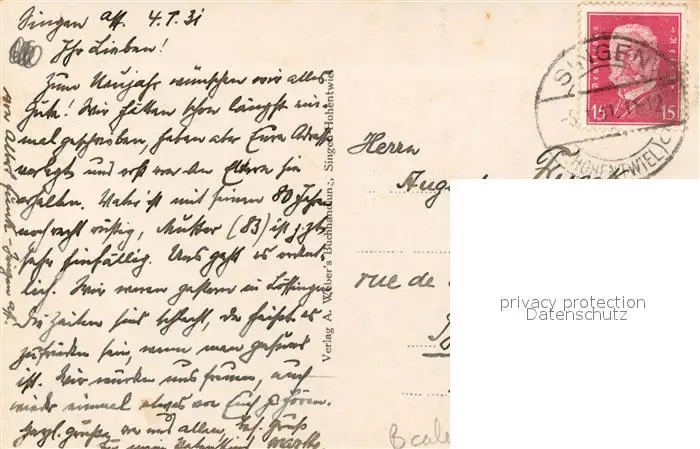 Singen a/H. 4.I.31
Ihr Lieben!
Zum Neujahr wünschen wir alles
Gute! Wir hätten schon längst ein-
mal geschrieben, haben aber Eure Adresse
verlegt und erst von den Eltern sie
erhalten. Vater ist mit seinen 80 Jahren
noch recht rüstig, Mutter (83) ist z. Zt.
sehr hinfällig. Uns geht es ordent-
lich. Wir waren gestern in Löffingen
Die Zeiten sind schlecht, da heißt es
zufrieden sein, wenn man gesund
ist. Wir würden uns freuen, auch
wieder einmal etwas von Euch zu hören.
Herzl. Grüße von uns allen, bes. Gruß
Verlag A. Weber's Buchhandlung, Singen-Hohentwiel
Herrn
rue de
DEUTSCHES REICH
15 15
SINGEN
(HOHENTWIEL)
privacy protection
Datenschutz